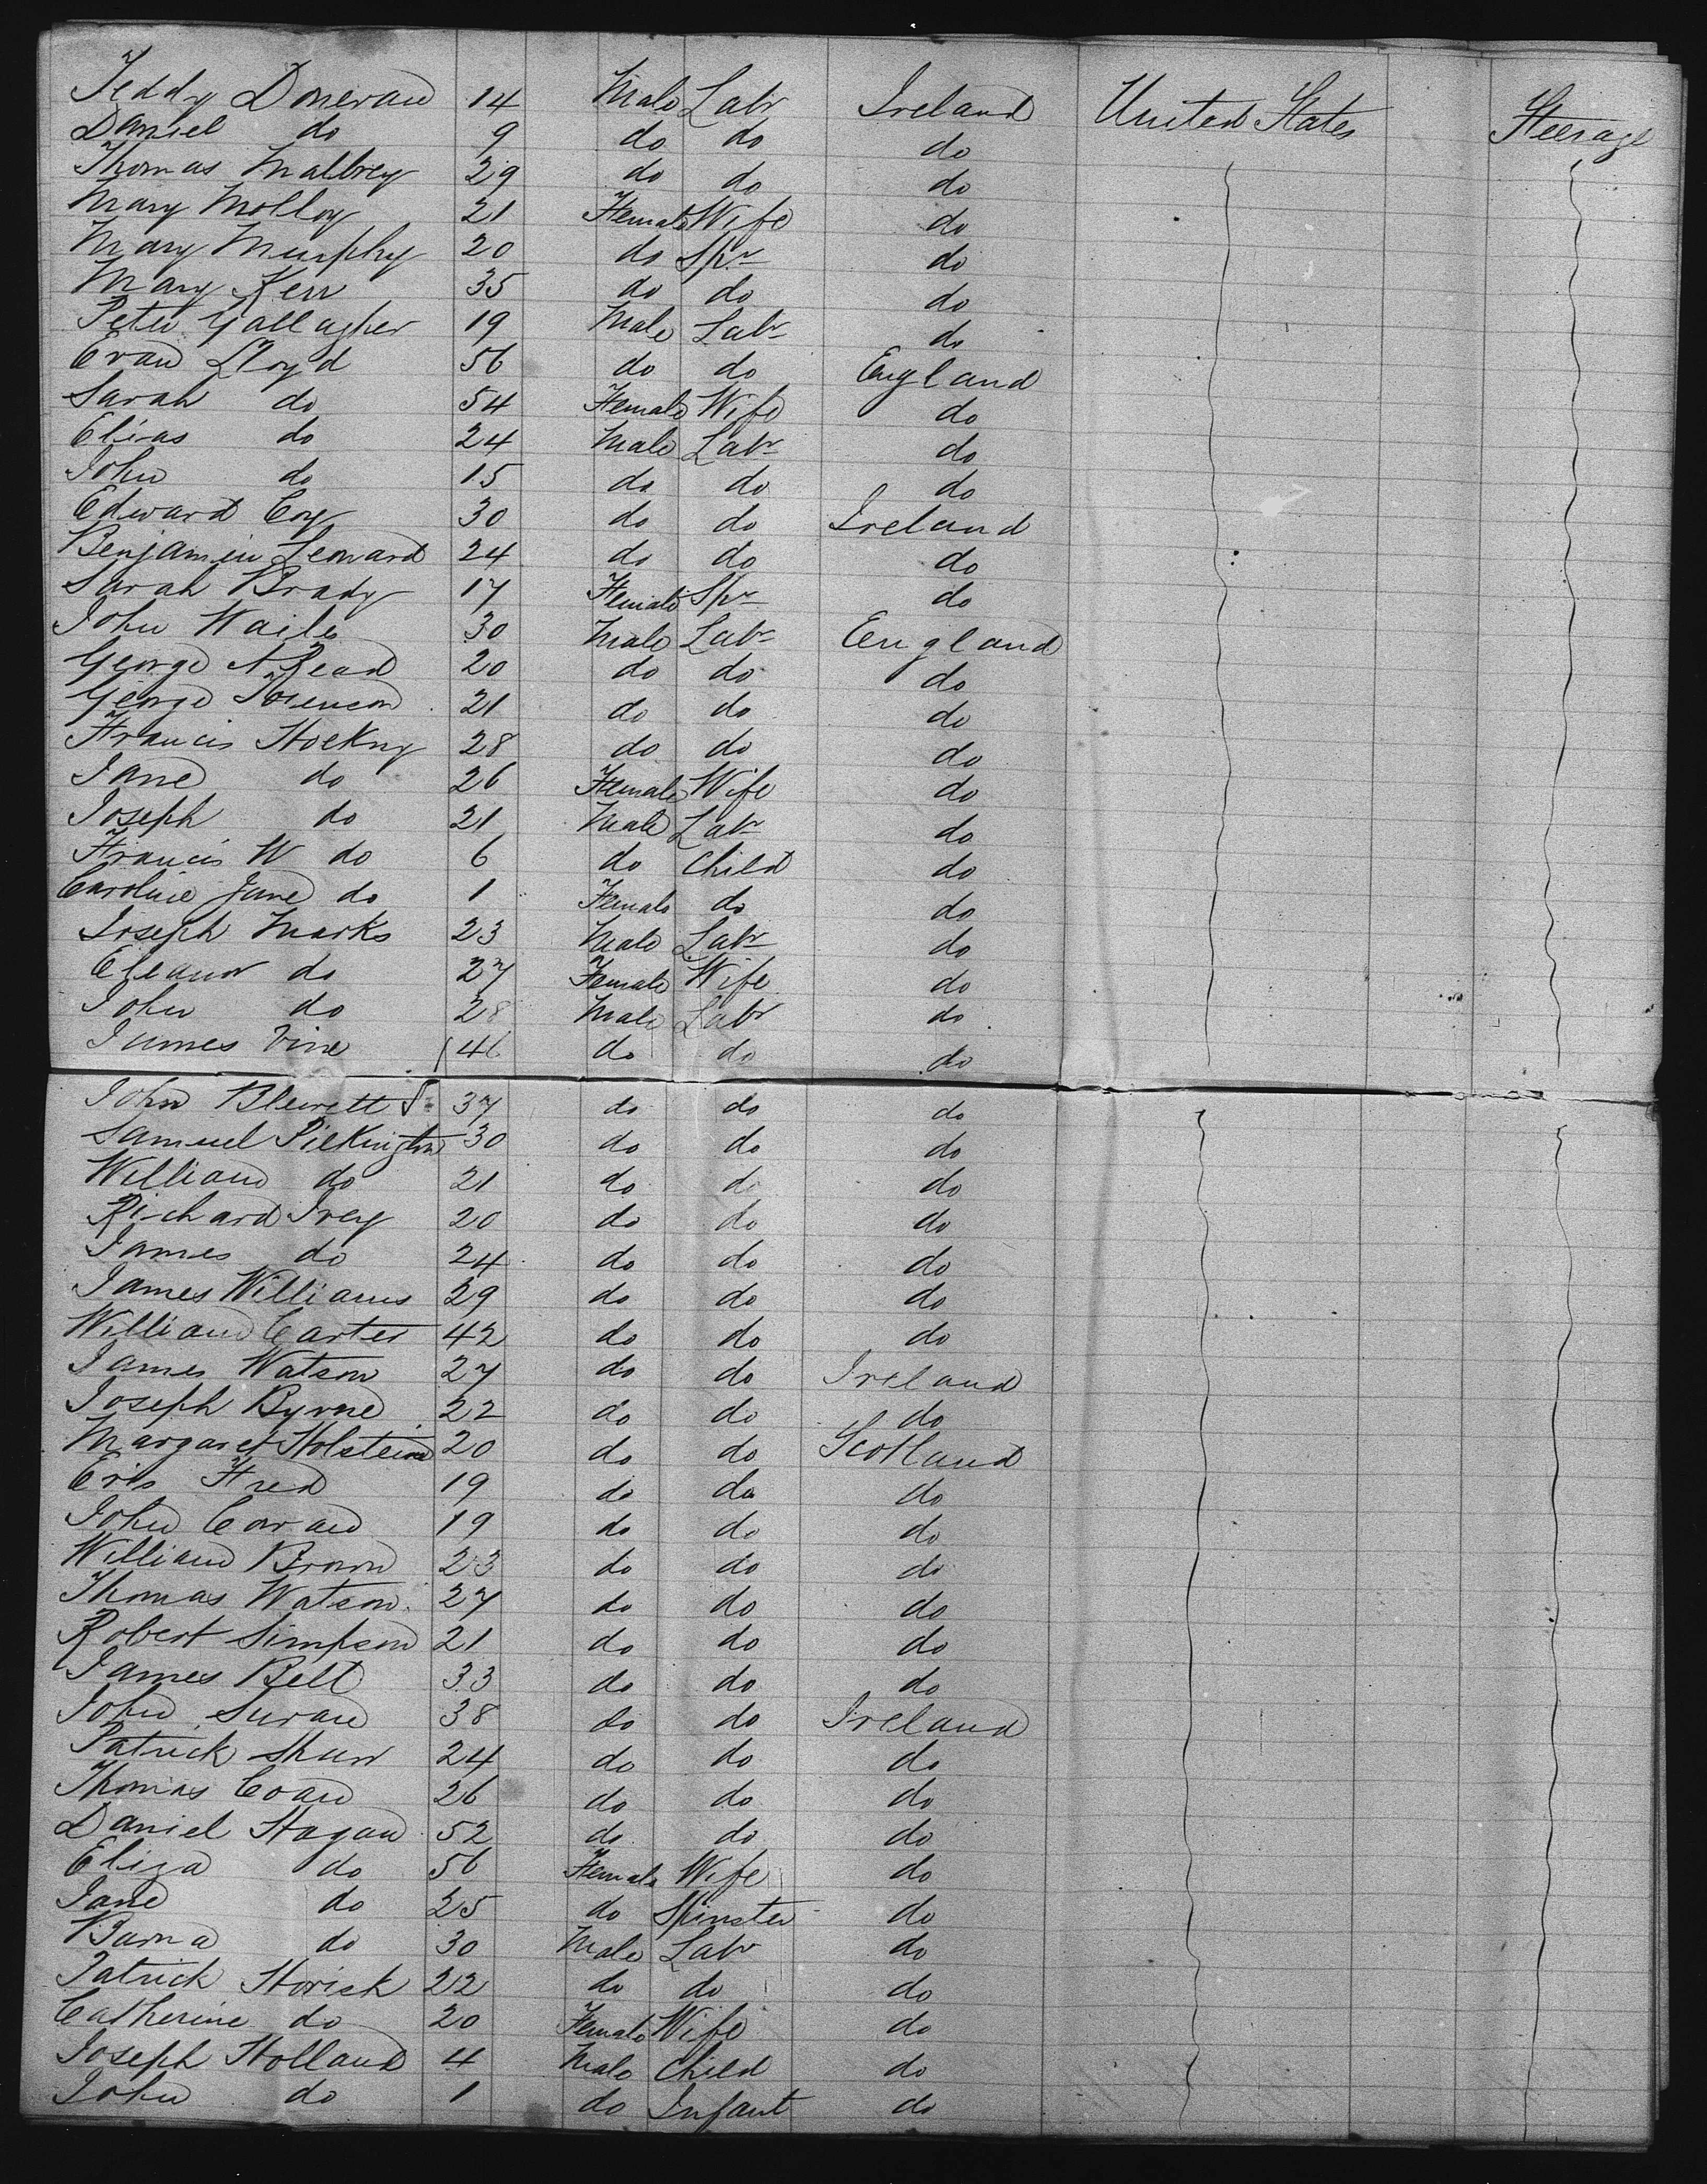 Teddy Donevan 14 Male Labr Ireland United States Steerage
Daniel do 9 do do do
Thomas Mallrey 29 do do do
Mary Molloy 21 Female Wife do
Mary Murphy 20 do Spr do
Mary Kerr 35 do do do
Peter Gallagher 19 Male Labr do
Evan Lloyd 56 do do England
Sarah do 54 Female Wife do
Elias do 24 Male Labr do
John do 15 do do do
Edward Coy 30 do do Ireland
Benjamin Leonard 24 do do do
Sarah Brady 17 Female Spr do
John Waile 30 Male Labr England
George A Read 20 do do do
George 21 do do do
Francis Hocking 28 do do do
Jane do 26 Female Wife do
Joseph do 21 Male Labr do
Francis W do 6 do Child do
Caroline Jane do 1 Female do do
Joseph Marks 23 Male Labr do
Eleanor do 27 Female Wife do
John do 28 Male Labr do
James Vine 46 do do do
John Blewett Sr 37 do do do
Samuel Pilkington 30 do do do
William do 21 do do do
Richard Ivey 20 do do do
James do 24 do do do
James Williams 29 do do do
William Carter 42 do do do
James Watson 27 do do Ireland
Joseph Byrne 22 do do do
Margaret Holstein 20 do do Scotland
Fred 19 do do do
John 19 do do do
William Brown 23 do do do
Thomas Watson 27 do do do
Robert Simpson 21 do do do
James Bell 33 do do do
John Suran 38 do do Ireland
Patrick Shaw 24 do do do
Thomas Coan 26 do do do
Daniel Hagan 52 do do do
Eliza do 56 Female Wife do
Jane do 25 do Spinster do
do 30 Male Labr do
Patrick Horisk 22 do do do
Catherine do 20 Female Wife do
Joseph Holland 4 Male Child do
John do 1 do Infant do